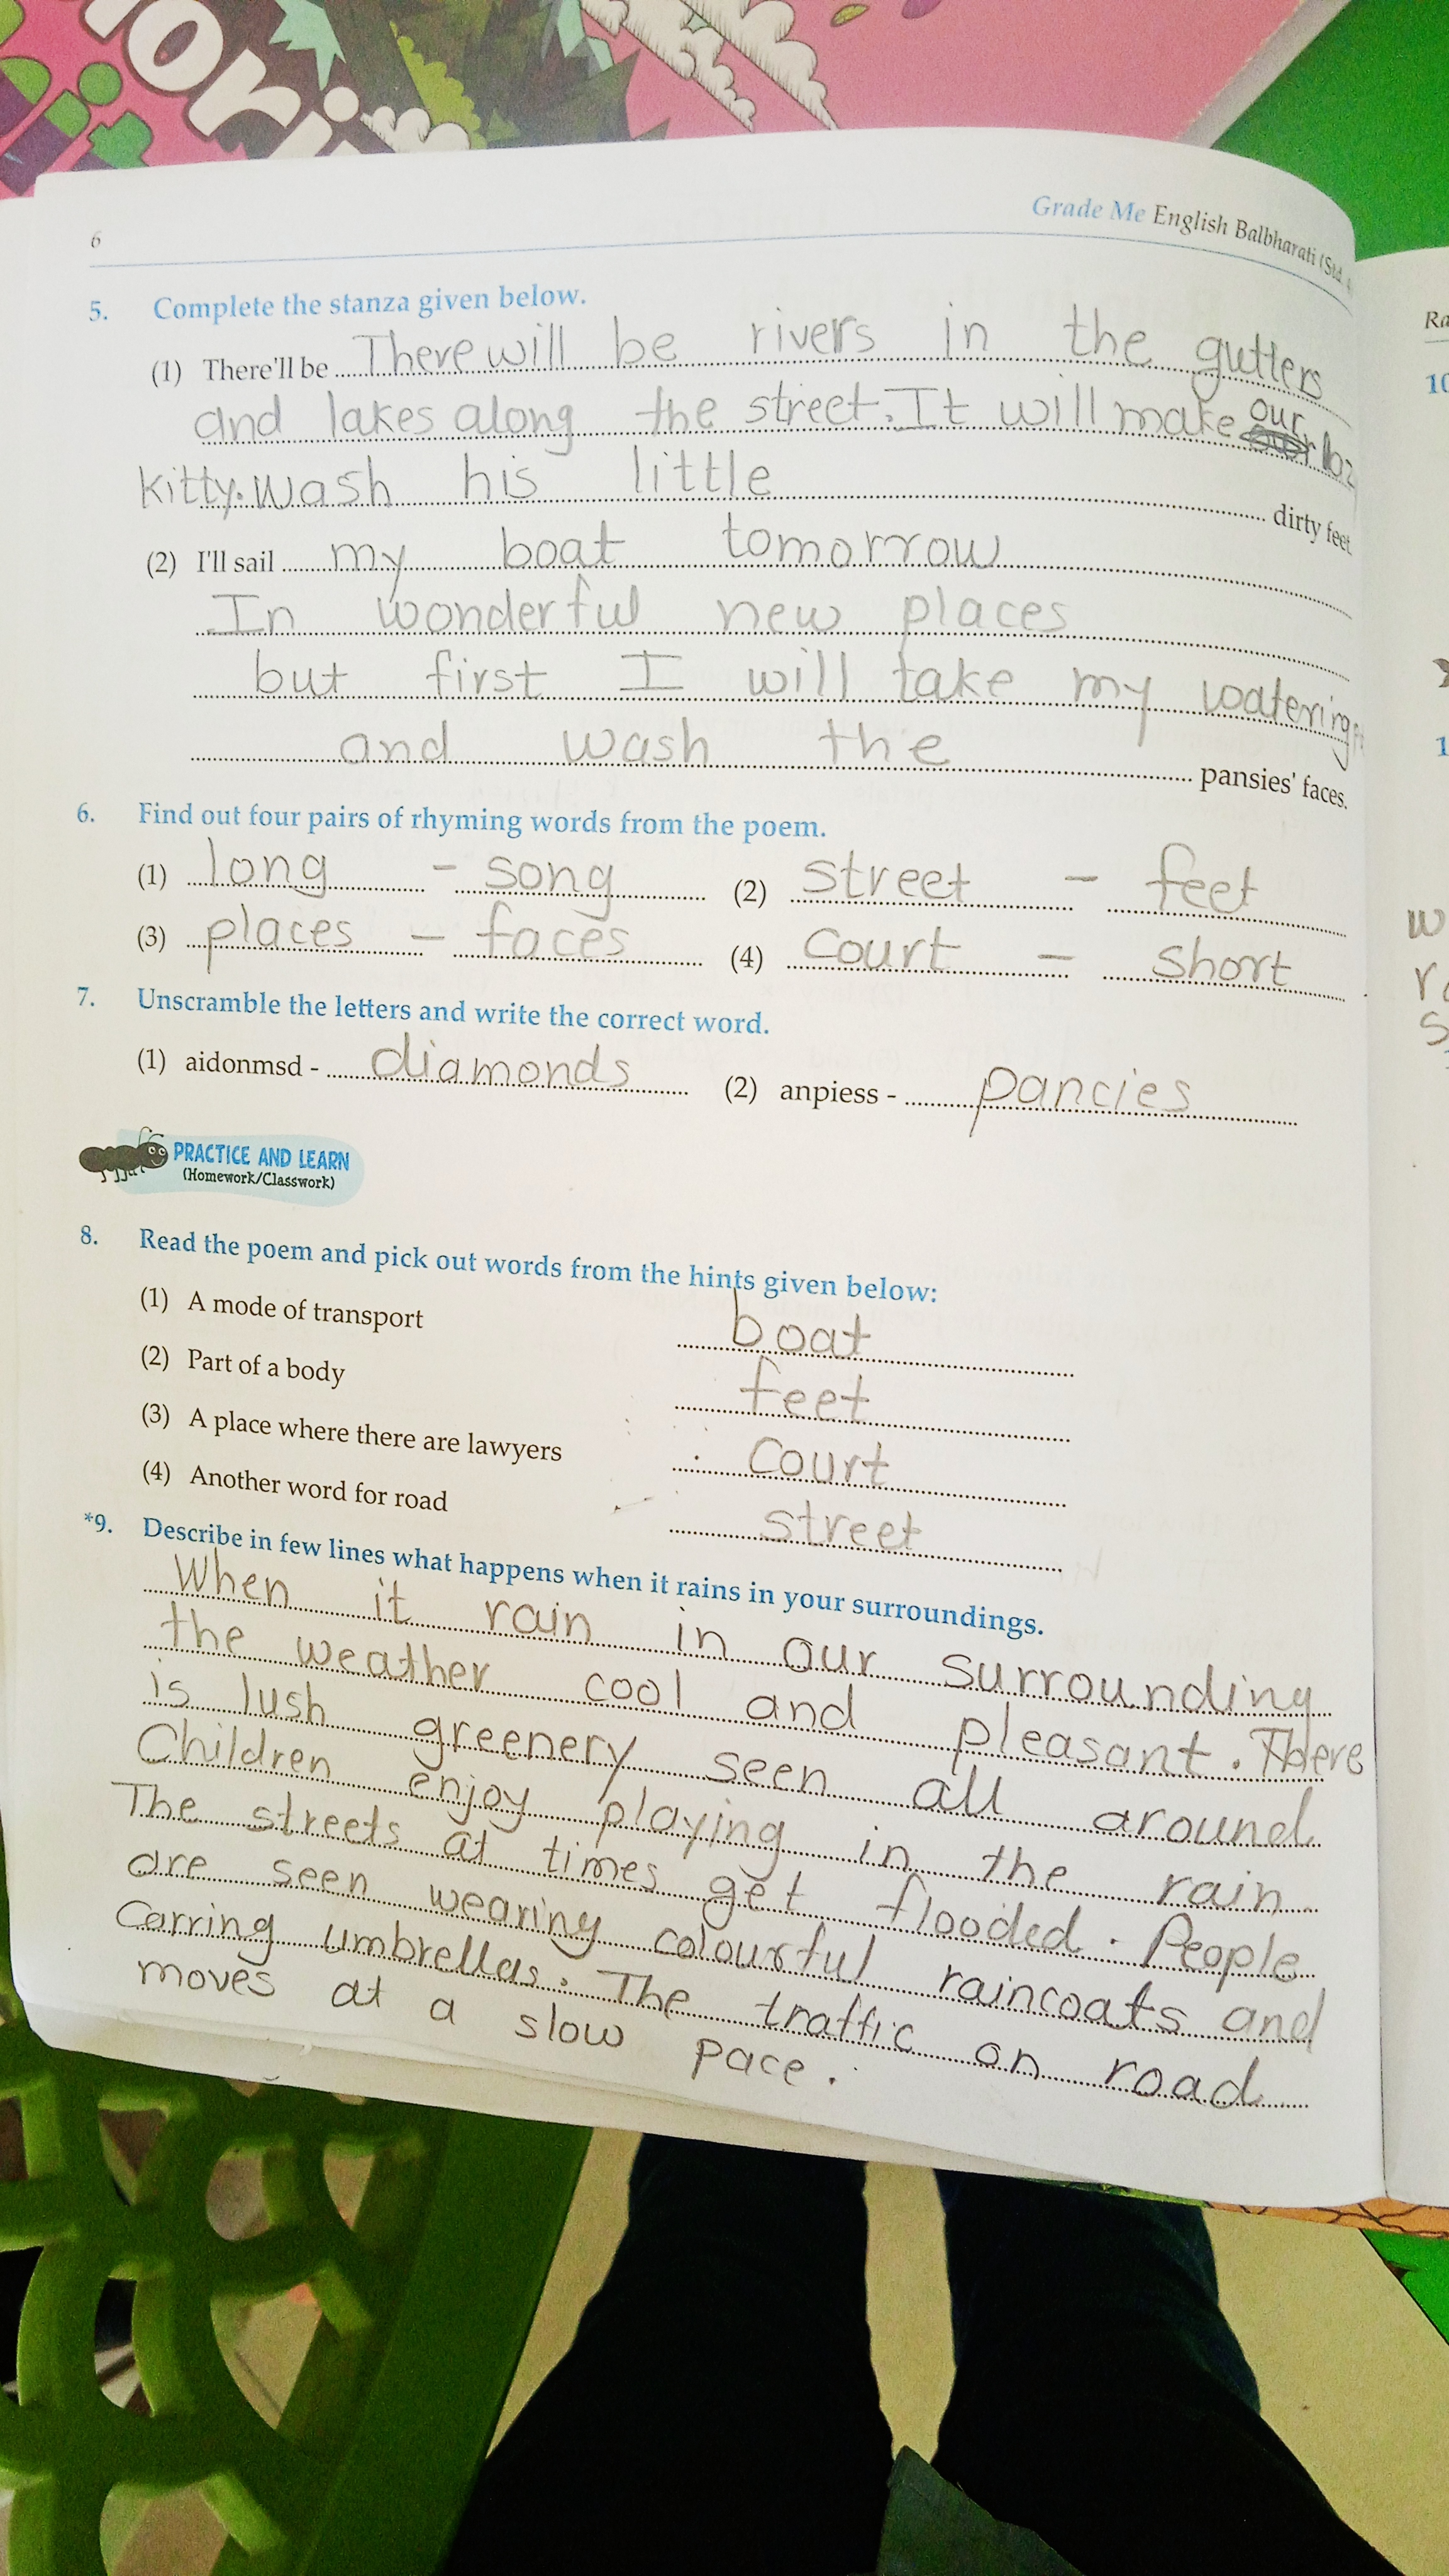 6
Grade Me English Balbharati (Std.
5. Complete the stanza given below.
(1) There'll be There will be rivers in the gutters
and lakes along the street. It will make our
kitty. wash his little dirty feet.
(2) I'll sail my boat tomorrow
In wonderful new places
but first I will take my watering
and wash the pansies' faces.
6. Find out four pairs of rhyming words from the poem.
(1) long - song (2) street - feet
(3) places - faces (4) court - short
7. Unscramble the letters and write the correct word.
(1) aidonmsd - diamonds (2) anpiess - pancies
PRACTICE AND LEARN
(Homework/Classwork)
8. Read the poem and pick out words from the hints given below:
(1) A mode of transport boat
(2) Part of a body feet
(3) A place where there are lawyers court
(4) Another word for road street
*9. Describe in few lines what happens when it rains in your surroundings.
When it rain in our surrounding
the weather cool and pleasant. There
is lush greenery seen all around
Children enjoy playing in the rain
The streets at times get flooded. People
are seen wearing colourful raincoats and
Carring umbrellas. The traffic on road
moves at a slow pace.